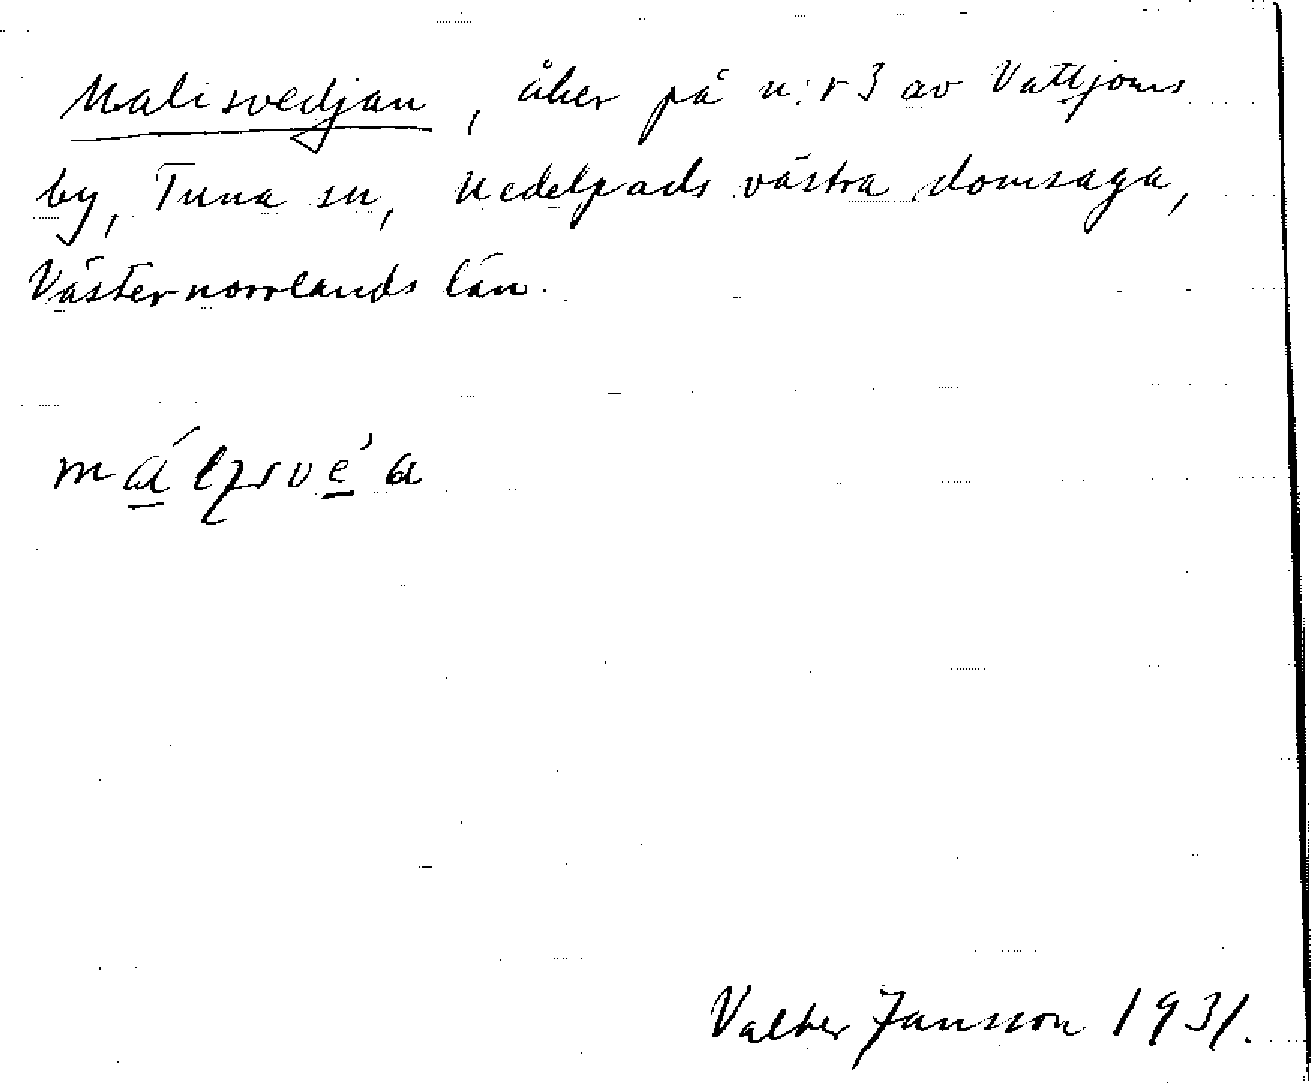 Malisvedjan, åker på n:r 3 av Vattjoms
by, Tuna sn, Medelpads västra domsaga,
Västernorrlands län.
Valter Jansson 1931.